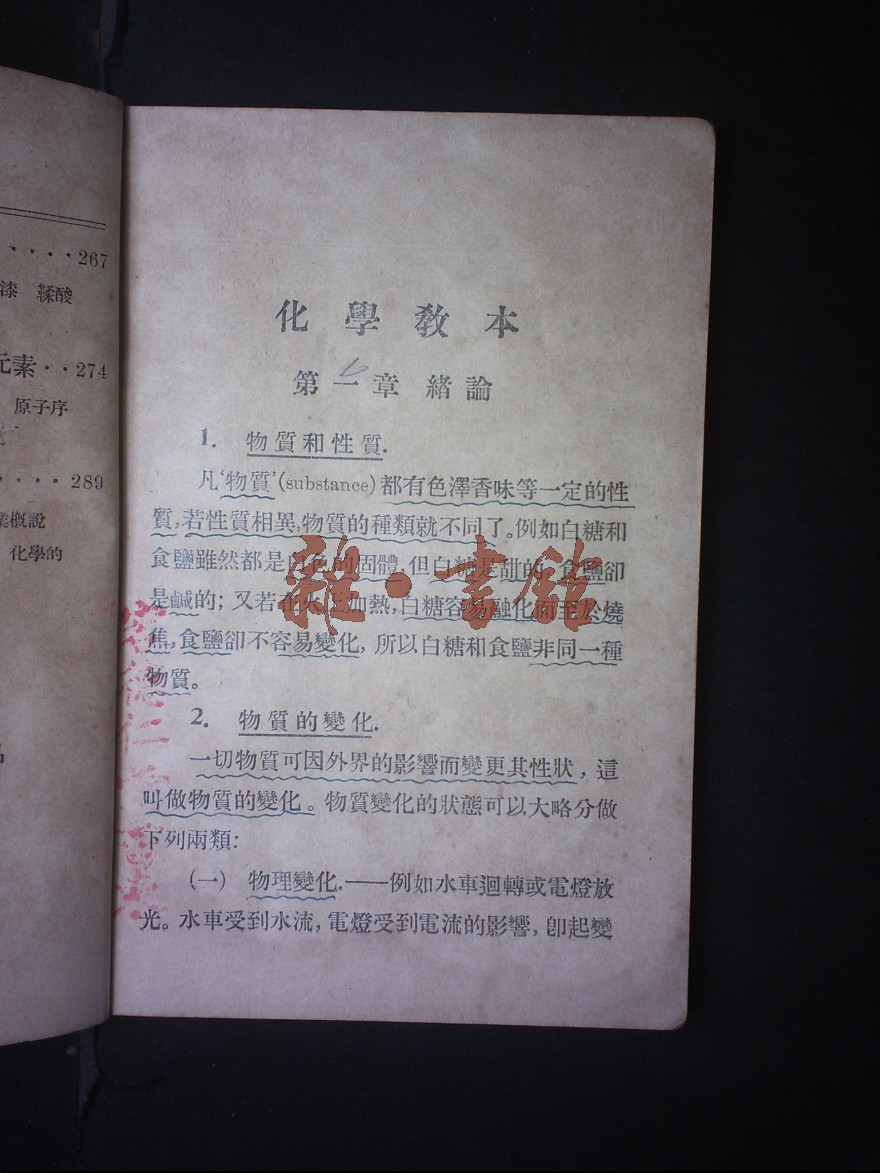 267
漆 鞣酸
元素··274
原子序
289
業概說
化學的
化學教本
第一章 緒論
1. 物質和性質.
凡‘物質’(substance)都有色澤香味等一定的性
質,若性質相異,物質的種類就不同了。例如白糖和
食鹽雖然都是白色的固體,但白糖是甜的,食鹽卻
是鹹的;又若在火上加熱,白糖容易融化而至於燒
焦,食鹽卻不容易變化,所以白糖和食鹽非同一種
物質。
2. 物質的變化.
一切物質可因外界的影響而變更其性狀,這
叫做物質的變化。物質變化的狀態可以大略分做
下列兩類:
(一) 物理變化.——例如水車迴轉或電燈放
光。水車受到水流,電燈受到電流的影響,卽起變
雜·書館